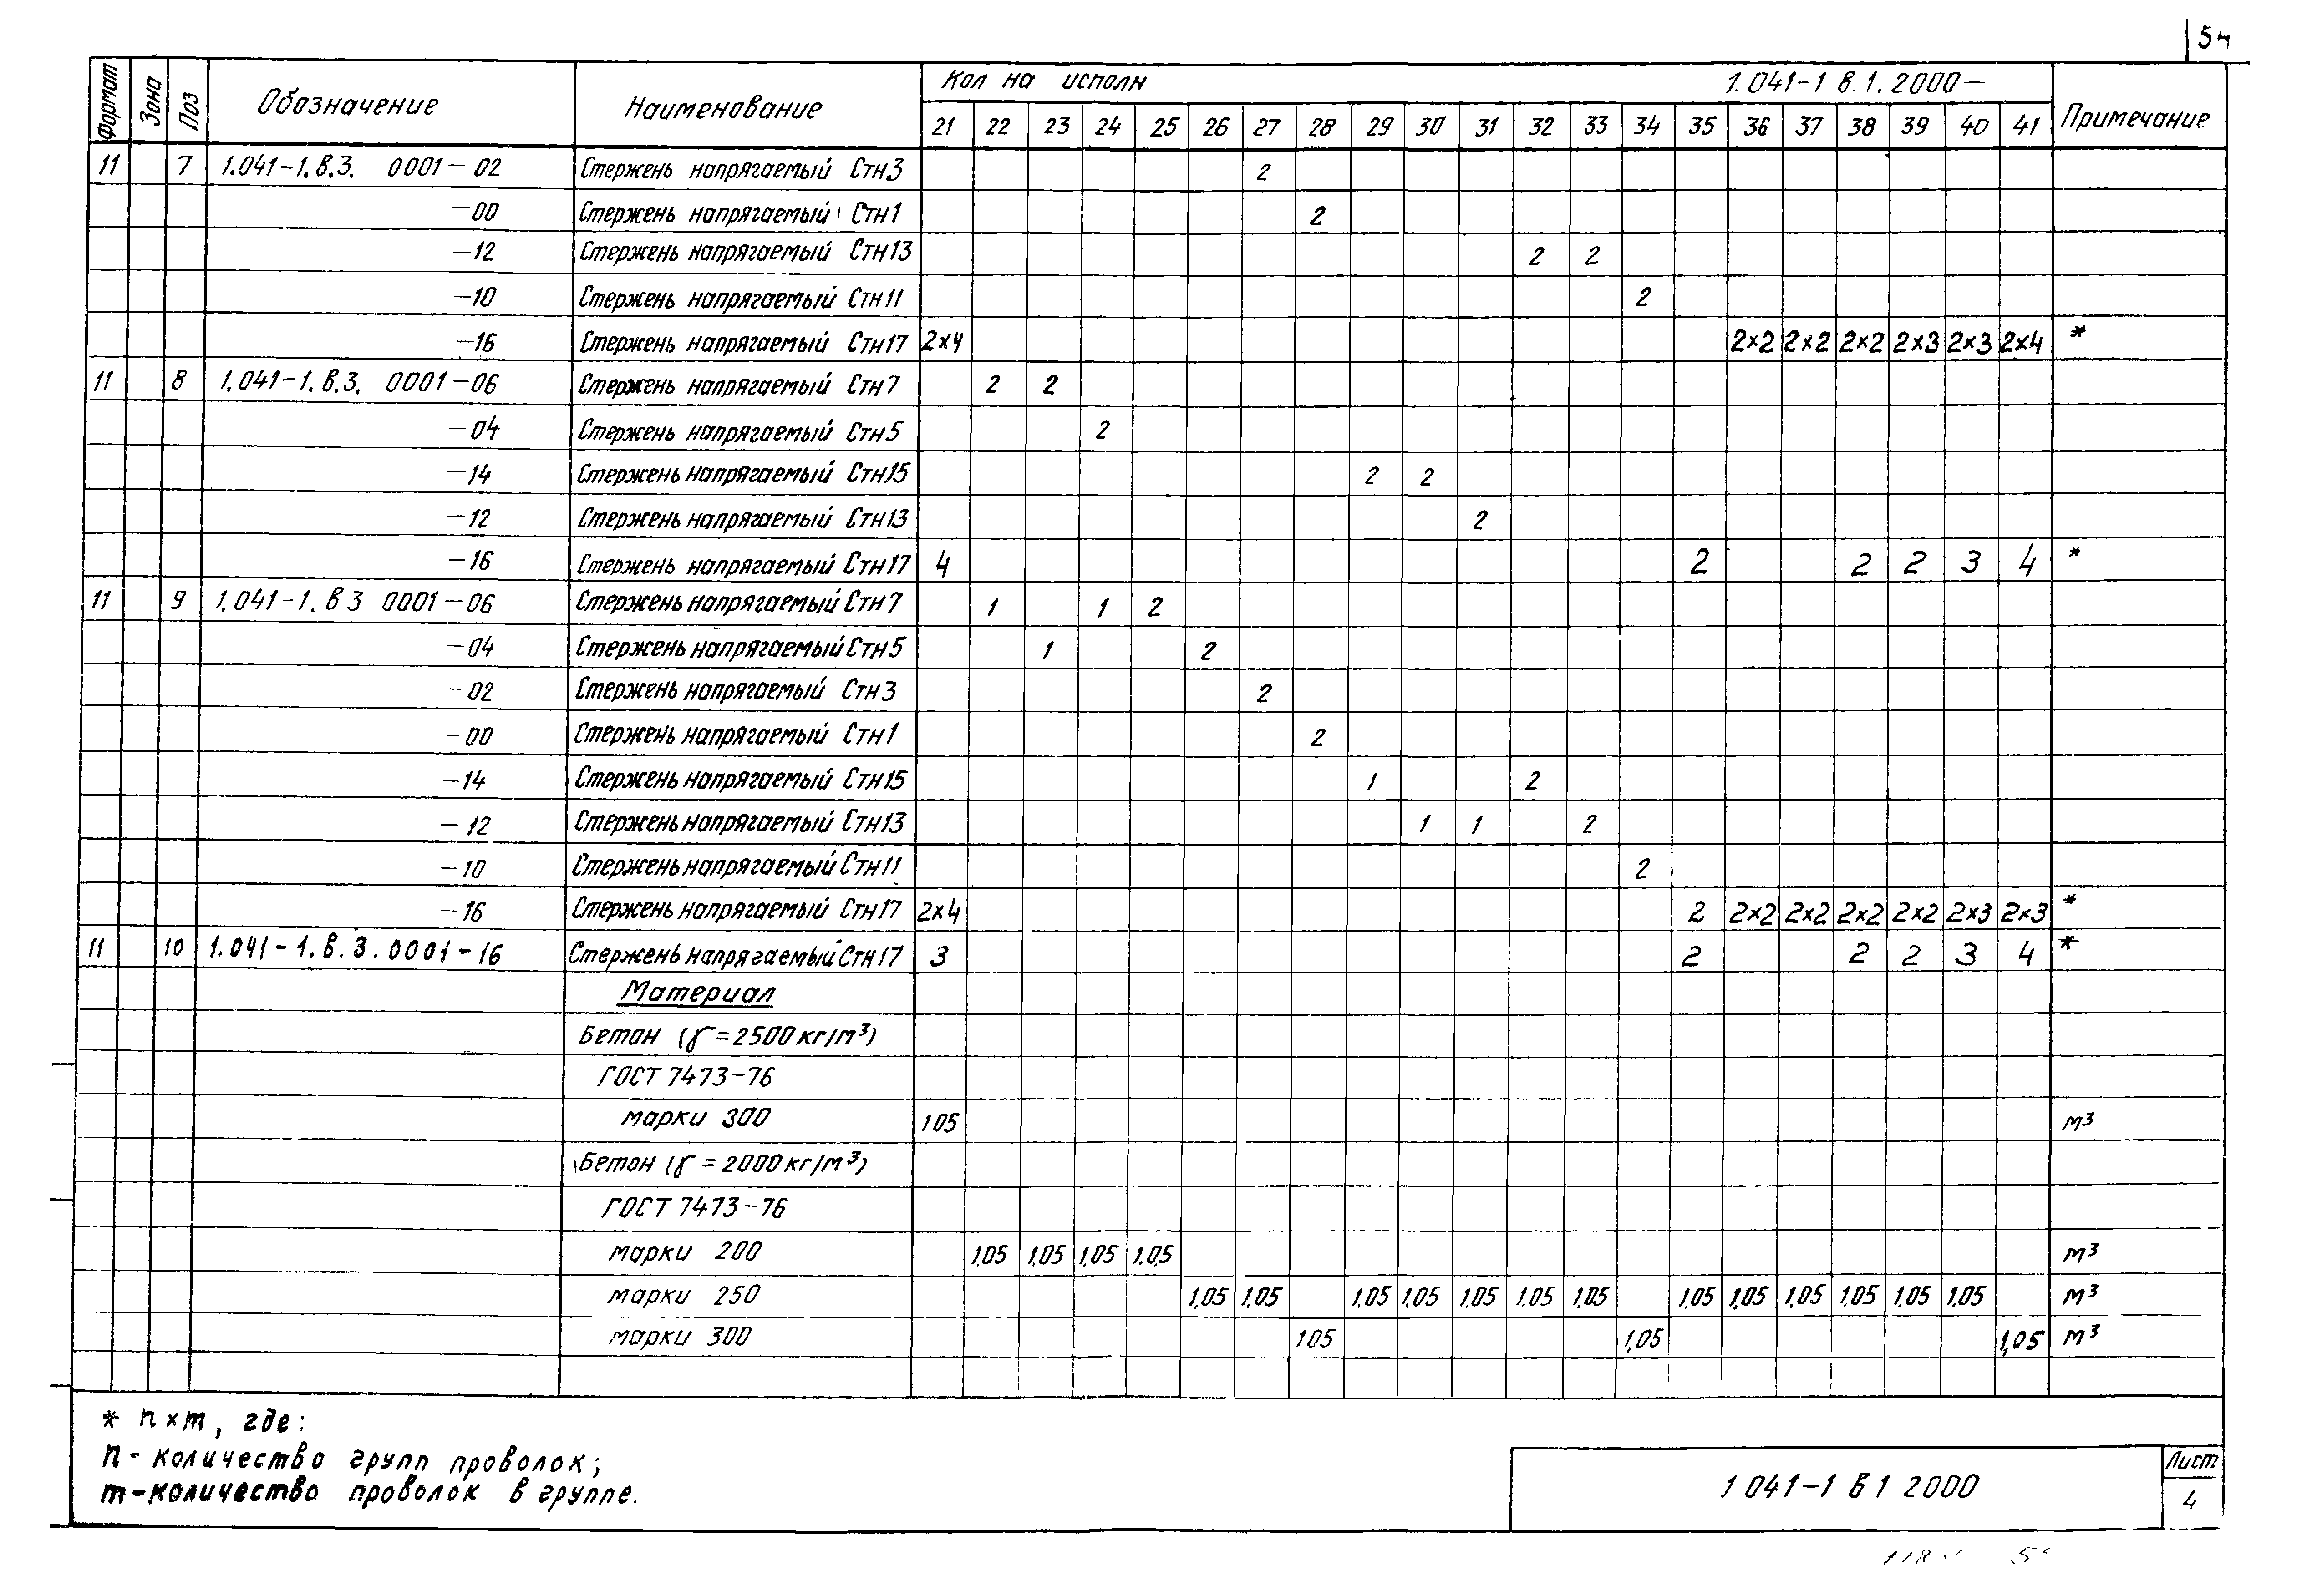 54
Формат Зона Поз Обозначение Наименование Кол на исполн 1.041-1 в.1.2000— Примечание
21 22 23 24 25 26 27 28 29 30 31 32 33 34 35 36 37 38 39 40 41
11 7 1.041-1.в.3. 0001-02 Стержень напрягаемый Стн3 2
-00 Стержень напрягаемый Стн1 2
-12 Стержень напрягаемый Стн13 2 2
-10 Стержень напрягаемый Стн11 2
-16 Стержень напрягаемый Стн17 2×4 2×2 2×2 2×2 2×3 2×3 2×4 *
11 8 1.041-1.в.3. 0001-06 Стержень напрягаемый Стн7 2 2
-04 Стержень напрягаемый Стн5 2
-14 Стержень напрягаемый Стн15 2 2
-12 Стержень напрягаемый Стн13 2
-16 Стержень напрягаемый Стн17 4 2 2 2 3 4 *
11 9 1.041-1.в 3 0001-06 Стержень напрягаемый Стн7 1 1 2
-04 Стержень напрягаемый Стн5 1 2
-02 Стержень напрягаемый Стн3 2
-00 Стержень напрягаемый Стн1 2
-14 Стержень напрягаемый Стн15 1 2
-12 Стержень напрягаемый Стн13 1 1 2
-10 Стержень напрягаемый Стн11 2
-16 Стержень напрягаемый Стн17 2×4 2 2×2 2×2 2×2 2×2 2×3 2×3 *
11 10 1.041-1.в.3.0001-16 Стержень напрягаемый Стн17 3 2 2 2 3 4 *
Материал
Бетон (γ=2500кг/м³)
ГОСТ 7473-76
марки 300 105 м³
Бетон (γ=2000кг/м³)
ГОСТ 7473-76
марки 200 1,05 1,05 1,05 1,05 м³
марки 250 1,05 1,05 1,05 1,05 1,05 1,05 1,05 1,05 1,05 1,05 1,05 1,05 1,05 м³
марки 300 105 1,05 1,05 м³
* n×m, где:
n-количество групп проволок;
m-количество проволок в группе.
1 041-1 в 1 2000
Лист
4